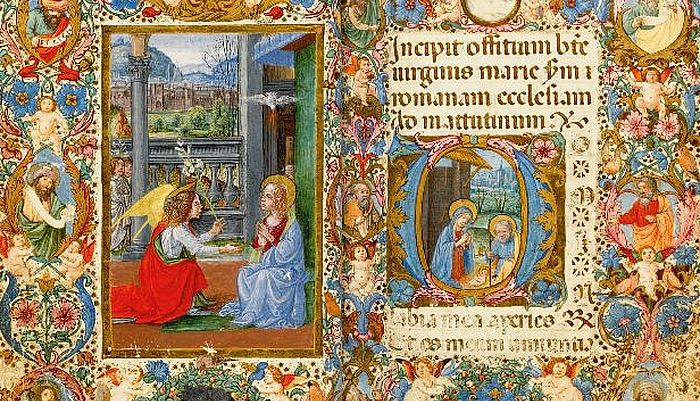 Incipit offitium bte
uirginis marie ſm
romanam ecclesiam
Ad matutinum
labia mea aperies
Et os meum annuntia